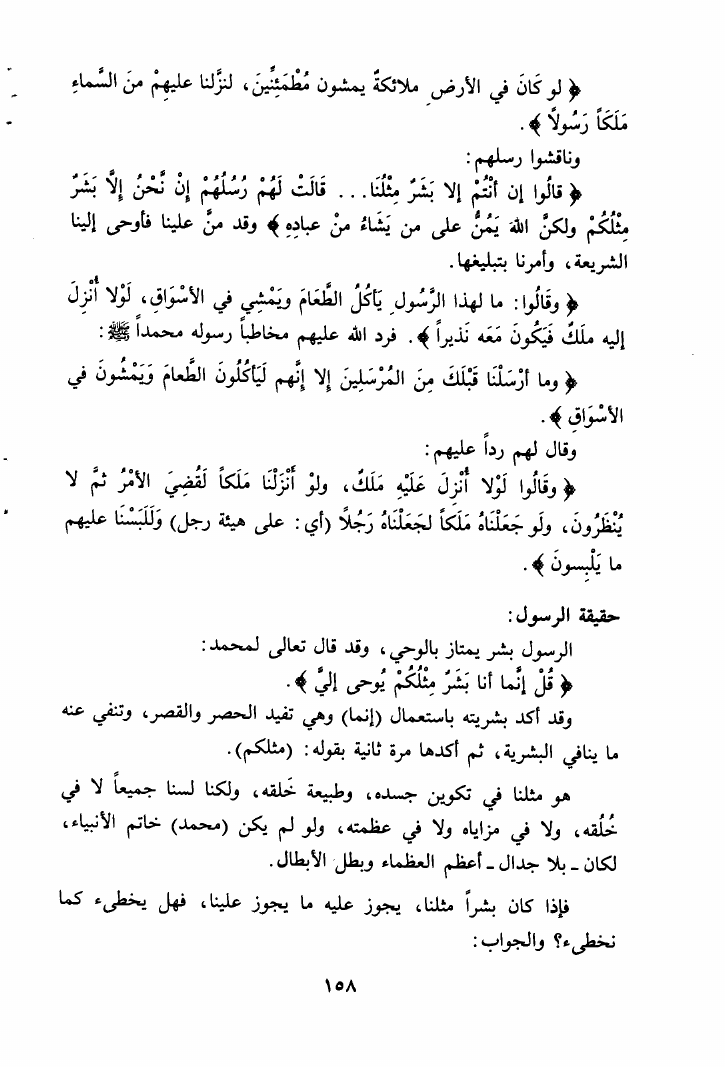 ﴿ لو كَانَ في الأرضِ ملائكةٌ يمشون مُطْمَئِنِّينَ، لنزَّلنا عليهِمْ منَ السَّماءِ
مَلَكَاً رَسُولاً ﴾.
وناقشوا رسلهم:
﴿ قالُوا إن أنْتُمْ إلا بَشَرٌ مِثْلُنَا... قَالَتْ لَهُمْ رُسُلُهُمْ إِنْ نَّحْنُ إِلَّا بَشَرٌ
مِثْلُكُمْ ولكنَّ اللهَ يَمُنُّ على من يَشَاءُ منْ عبادِهِ ﴾ وقد منَّ علينا فأوحى إلينا
الشريعة، وأمرنا بتبليغها.
﴿ وقَالُوا: ما لهذا الرَّسُولِ يَأكُلُ الطَّعَامَ ويَمْشِي في الأسْوَاقِ، لَوْلا أُنْزِلَ
إليه ملَكٌ فَيَكُونَ مَعَه نَذيراً ﴾. فرد الله عليهم مخاطباً رسوله محمداً ﷺ:
﴿ وما أرْسَلْنَا قَبْلَكَ مِنَ المُرْسَلِينَ إلا إنَّهم لَيَأكُلُونَ الطَّعامَ وَيَمْشُونَ في
الأسْوَاقِ ﴾.
وقال لهم رداً عليهم:
﴿ وقَالُوا لَوْلا أُنْزِلَ عَلَيْهِ مَلَكٌ، ولوْ أَنْزَلْنَا مَلَكاً لَقُضِيَ الأمْرُ ثمَّ لا
يُنْظَرُونَ، ولَو جَعَلْنَاهُ مَلَكاً لجَعَلْنَاهُ رَجُلاً (أي: على هيئة رجل) وَلَلَبَسْنَا عليهم
ما يَلْبِسونَ ﴾.
حقيقة الرسول:
الرسول بشر يمتاز بالوحي، وقد قال تعالى لمحمد:
﴿ قُلْ إنَّما أنا بَشَرٌ مِثْلُكُمْ يُوحى إليَّ ﴾.
وقد أكد بشريته باستعمال (إنما) وهي تفيد الحصر والقصر، وتنفي عنه
ما ينافي البشرية، ثم أكدها مرة ثانية بقوله: (مثلكم).
هو مثلنا في تكوين جسده، وطبيعة خَلقه، ولكنا لسنا جميعاً لا في
خُلُقه، ولا في مزاياه ولا في عظمته، ولو لم يكن (محمد) خاتم الأنبياء،
لكان ـ بلا جدال ـ أعظم العظماء وبطل الأبطال.
فإذا كان بشراً مثلنا، يجوز عليه ما يجوز علينا، فهل يخطىء كما
نخطىء؟ والجواب:
١٥٨